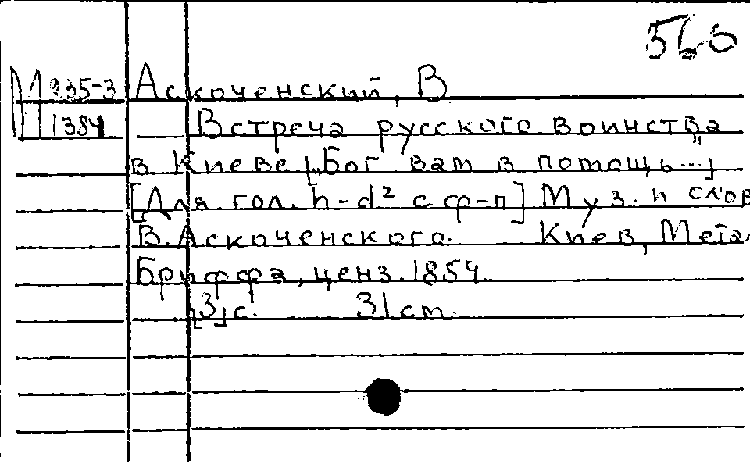 560
М 235-3 Аскоченский, В
1384 Встреча русского воинства
в Киеве [„Бог вам в помощь..."]
[Для гол. h-d² с ф-п] Муз. и слов
В. Аскоченского. Киев, Мета
Бриффа, ценз. 1854.
[3] с. 31 см.